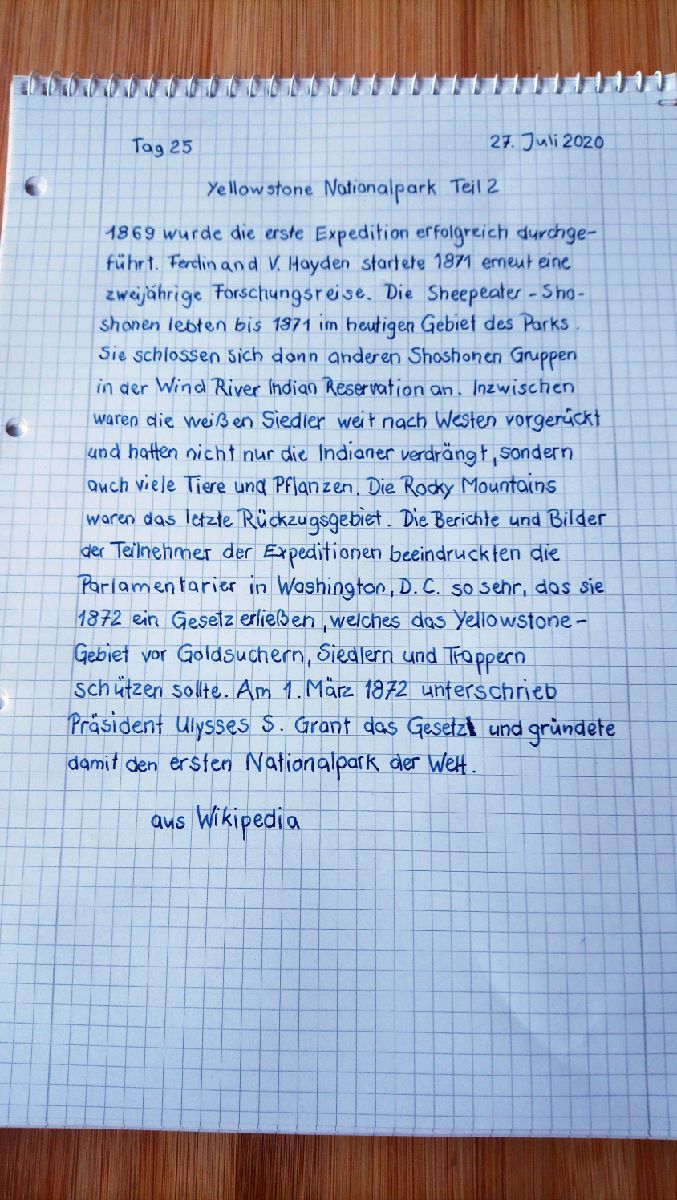 Tag 25 27. Juli 2020
Yellowstone Nationalpark Teil 2
1869 wurde die erste Expedition erfolgreich durchge-
führt. Ferdinand V. Hayden startete 1871 erneut eine
zweijährige Forschungsreise. Die Sheepeater-Sho-
shonen lebten bis 1871 im heutigen Gebiet des Parks.
Sie schlossen sich dann anderen Shoshonen Gruppen
in der Wind River Indian Reservation an. Inzwischen
waren die weißen Siedler weit nach Westen vorgerückt
und hatten nicht nur die Indianer verdrängt, sondern
auch viele Tiere und Pflanzen. Die Rocky Mountains
waren das letzte Rückzugsgebiet. Die Berichte und Bilder
der Teilnehmer der Expeditionen beeindruckten die
Parlamentarier in Washington, D.C. so sehr, das sie
1872 ein Gesetz erließen, welches das Yellowstone-
Gebiet vor Goldsuchern, Siedlern und Trappern
schützen sollte. Am 1. März 1872 unterschrieb
Präsident Ulysses S. Grant das Gesetz und gründete
damit den ersten Nationalpark der Welt.
aus Wikipedia